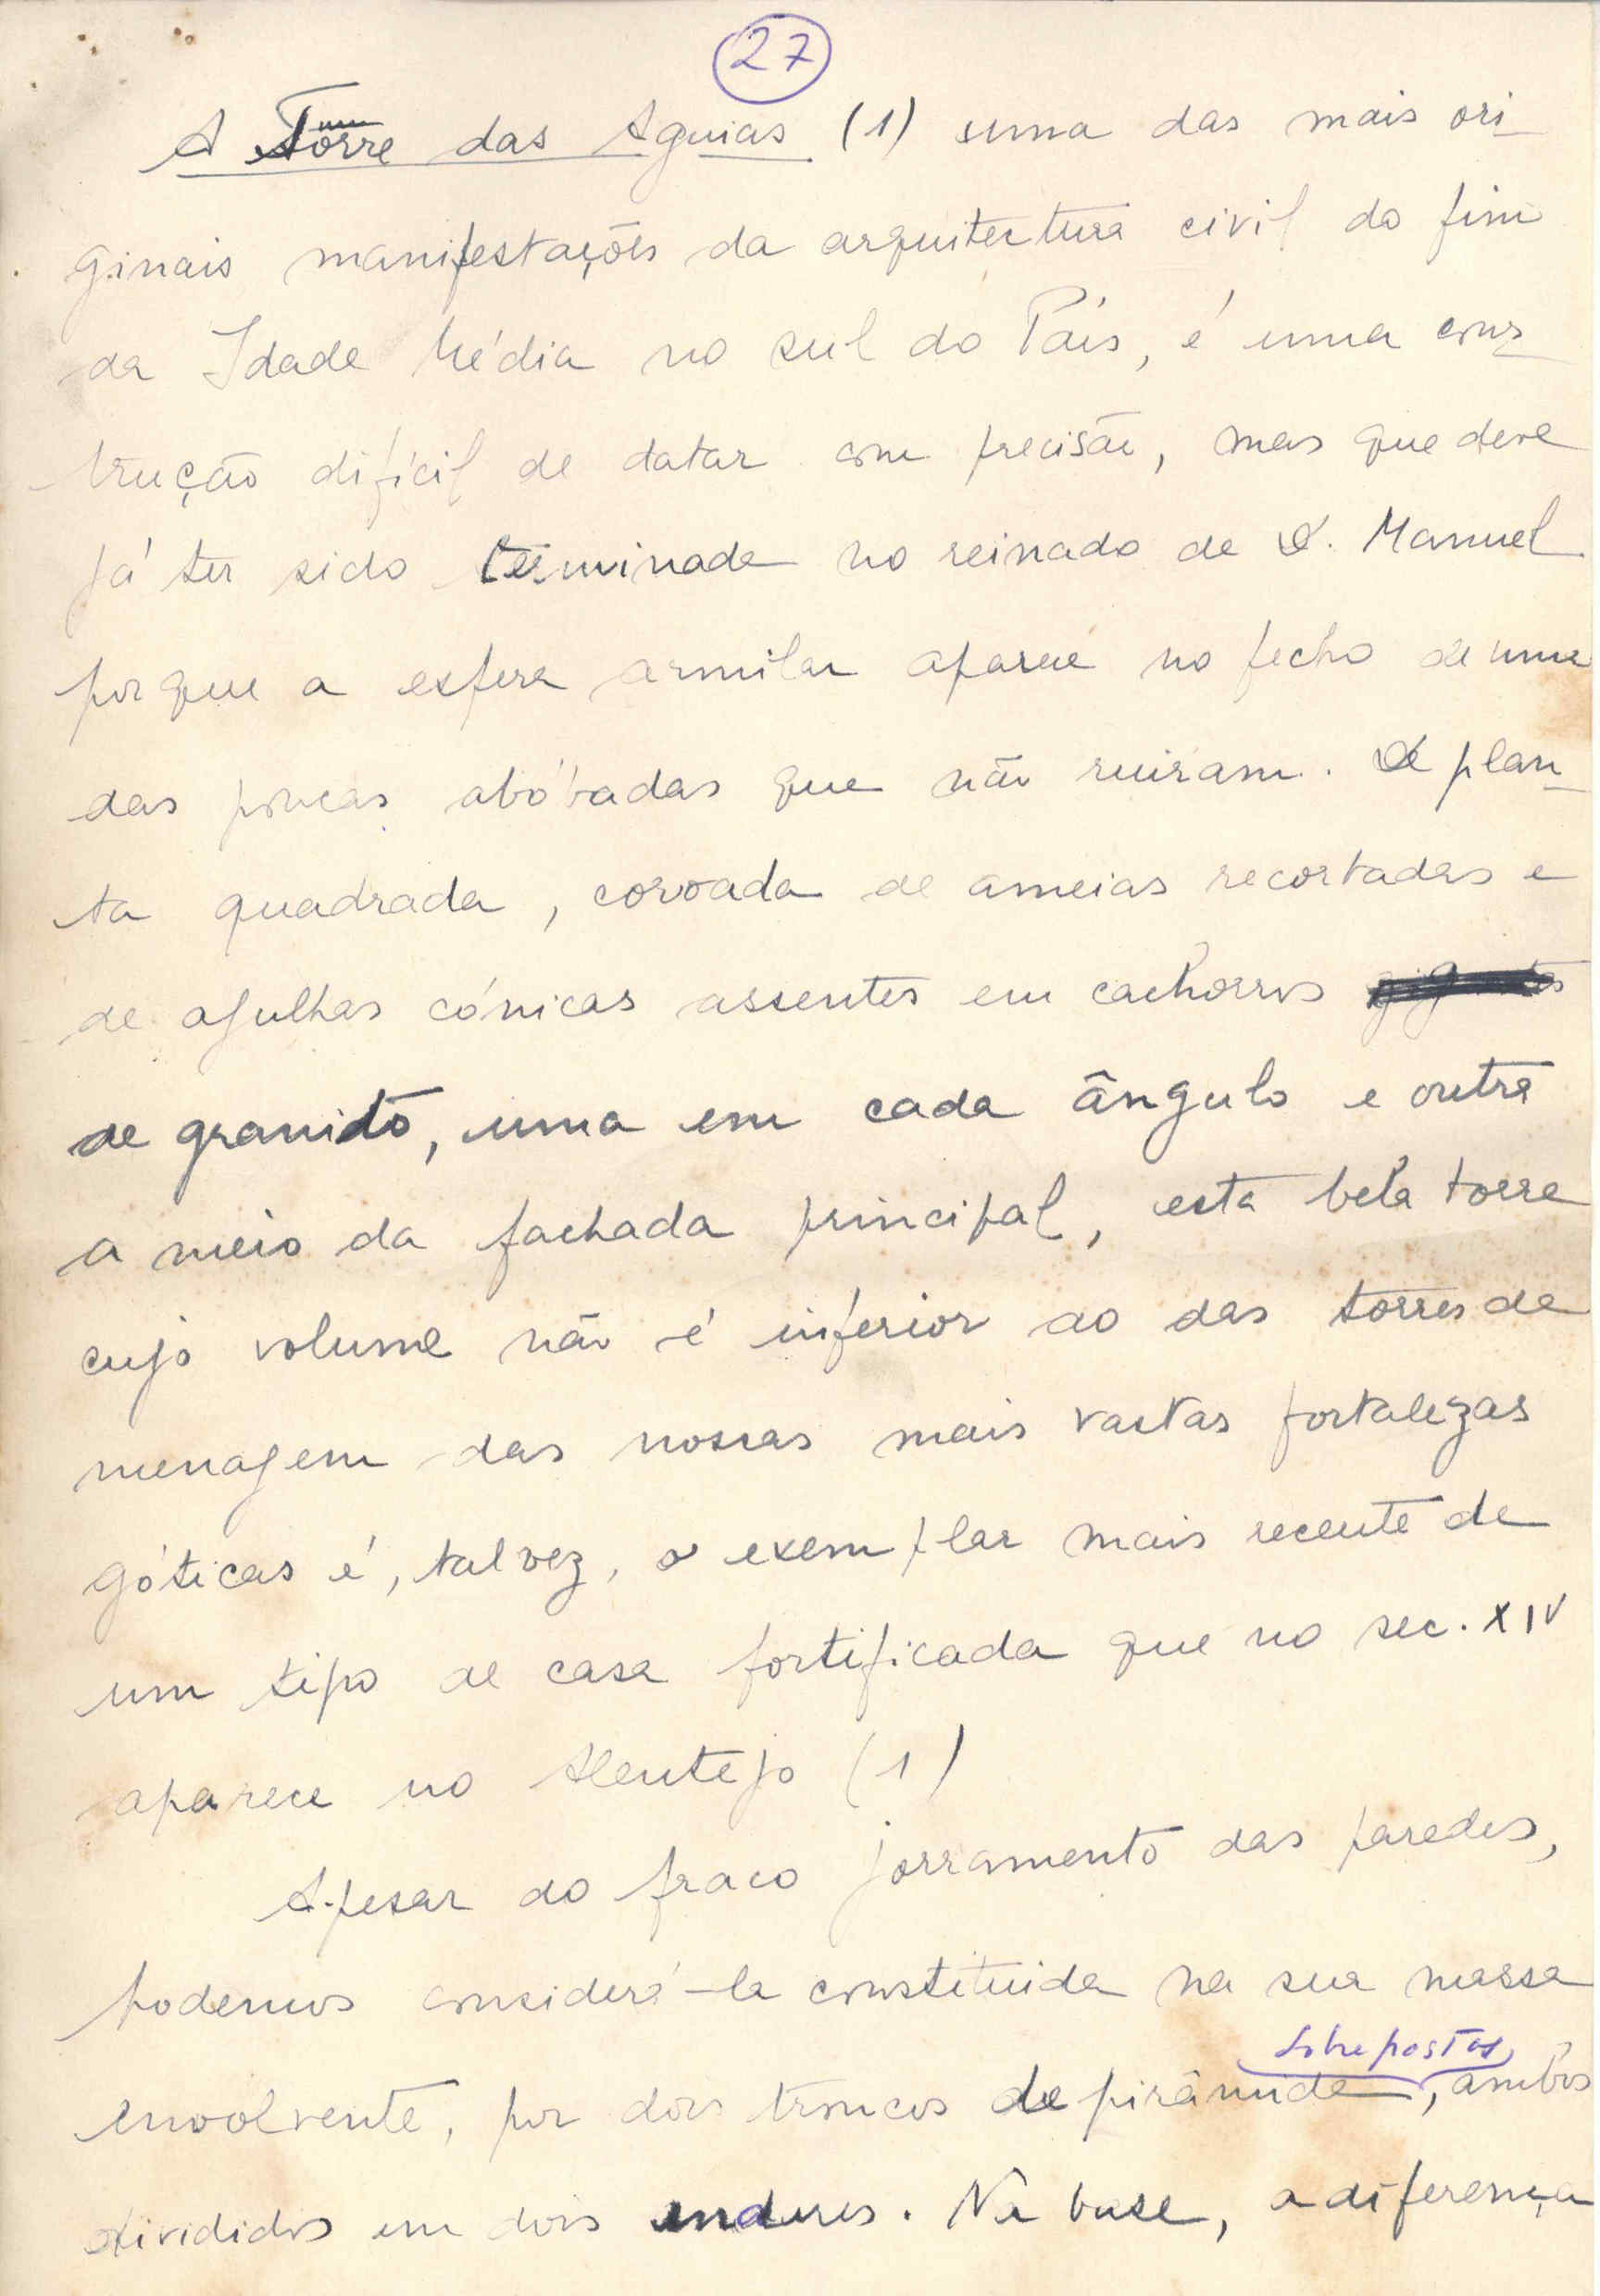 27
A Tôrre das Aguias (1) uma das mais ori
ginais manifestações da arquitectura civil do fim
da Idade Média no sul do País, é uma cons
trução difícil de datar com precisão, mas que deve
já ter sido terminada no reinado de D. Manuel
porque a esfera armilar aparece no fecho de uma
das poucas abóbadas que não ruiram. De plan-
ta quadrada, coroada de ameias recortadas e
de agulhas cónicas assentes em cachorros
de granito, uma em cada ângulo e outra
a meio da fachada principal, esta bela torre
cujo volume não é inferior ao das torres de
menagem das nossas mais vastas fortalezas
góticas é, talvez, o exemplar mais recente de
um tipo de casa fortificada que no sec. XIV
aparece no Alentejo (1)
Apesar do fraco jorramento das paredes,
podemos considerá-la constituida na sua massa
sobrepostos
envolvente, por dois troncos de pirâmide, ambos
divididos em dois andares. Na base, a diferença